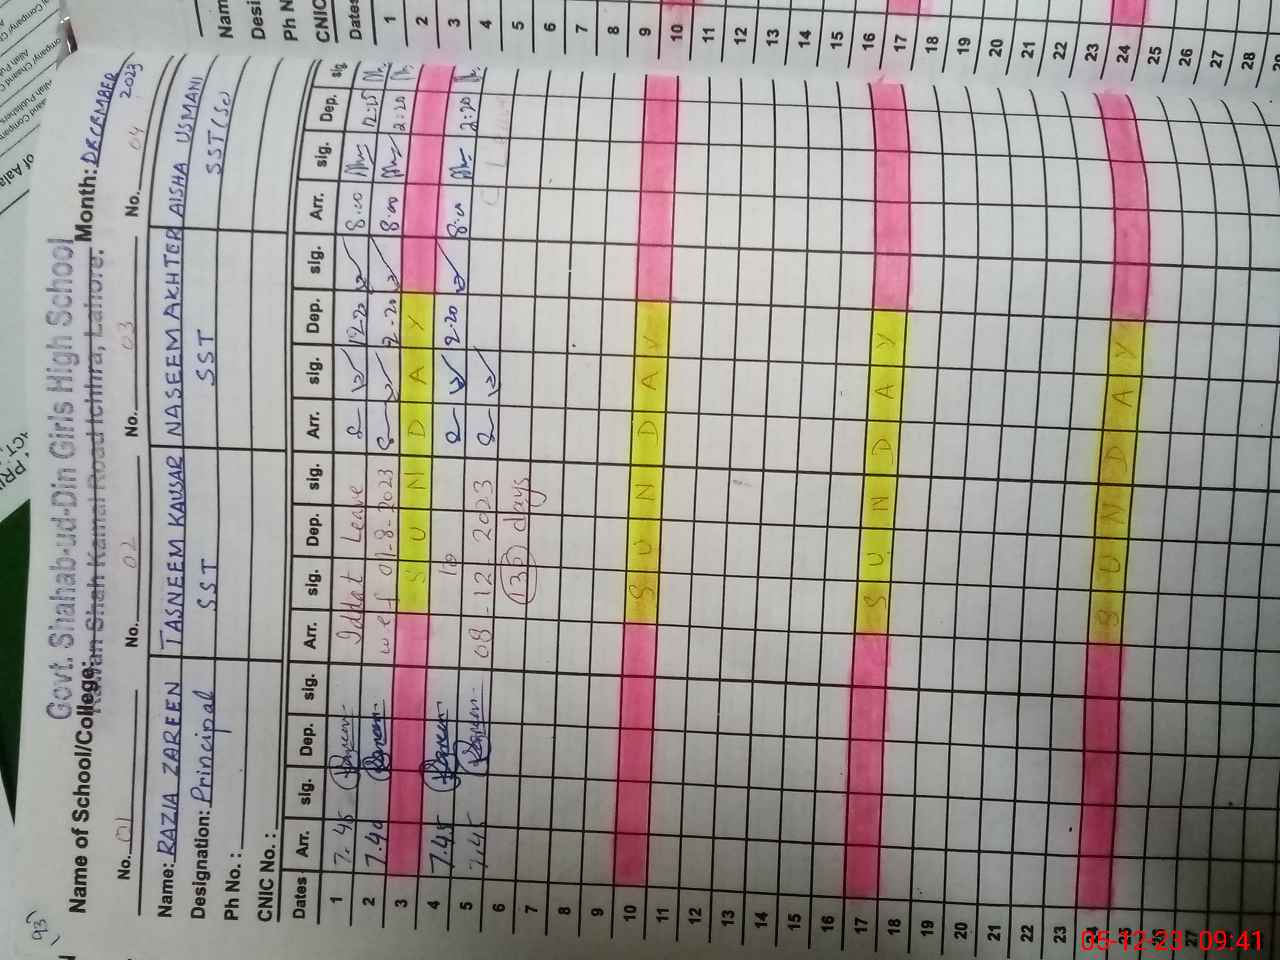 Govt. Shahab-ud-Din Girls High School
Name of School/College:
Shah Kamal Road Ichhra, Lahore.
Month: DECEMBER 2023
No. 01
No. 02
No. 03
No. 04
Name: RAZIA ZAREEN TASNEEM KAUSAR NASEEM AKHTER AISHA USMANI
Designation: Principal SST SST SST(Sc)
Ph No. :
CNIC No. :
Dates Arr. sig. Dep. sig. Arr. sig. Dep. sig. Arr. sig. Dep. sig. Arr. sig. Dep. sig.
1 7.45 Iddat Leave 8 12-20 8:00 12:15
2 7.40 w e f 01-8-2023 8 2-20 8:00 2:20
3 S U N D A Y
4 7.45 to 8 2.20 8:00 2:20
5 7.45 08-12 2023 8
6 130 days
7
8
9
10 S U N D A Y
11
12
13
14
15
16
17 S U N D A Y
18
19
20
21
22
23
24 S U N D A Y
25
26
27
Nam
Desi
Ph N
CNIC
Dates
1
2
3
4
5
6
7
8
9
10
11
12
13
14
15
16
17
18
19
20
21
22
23
24
25
26
27
28
93
05-12-23 09:41